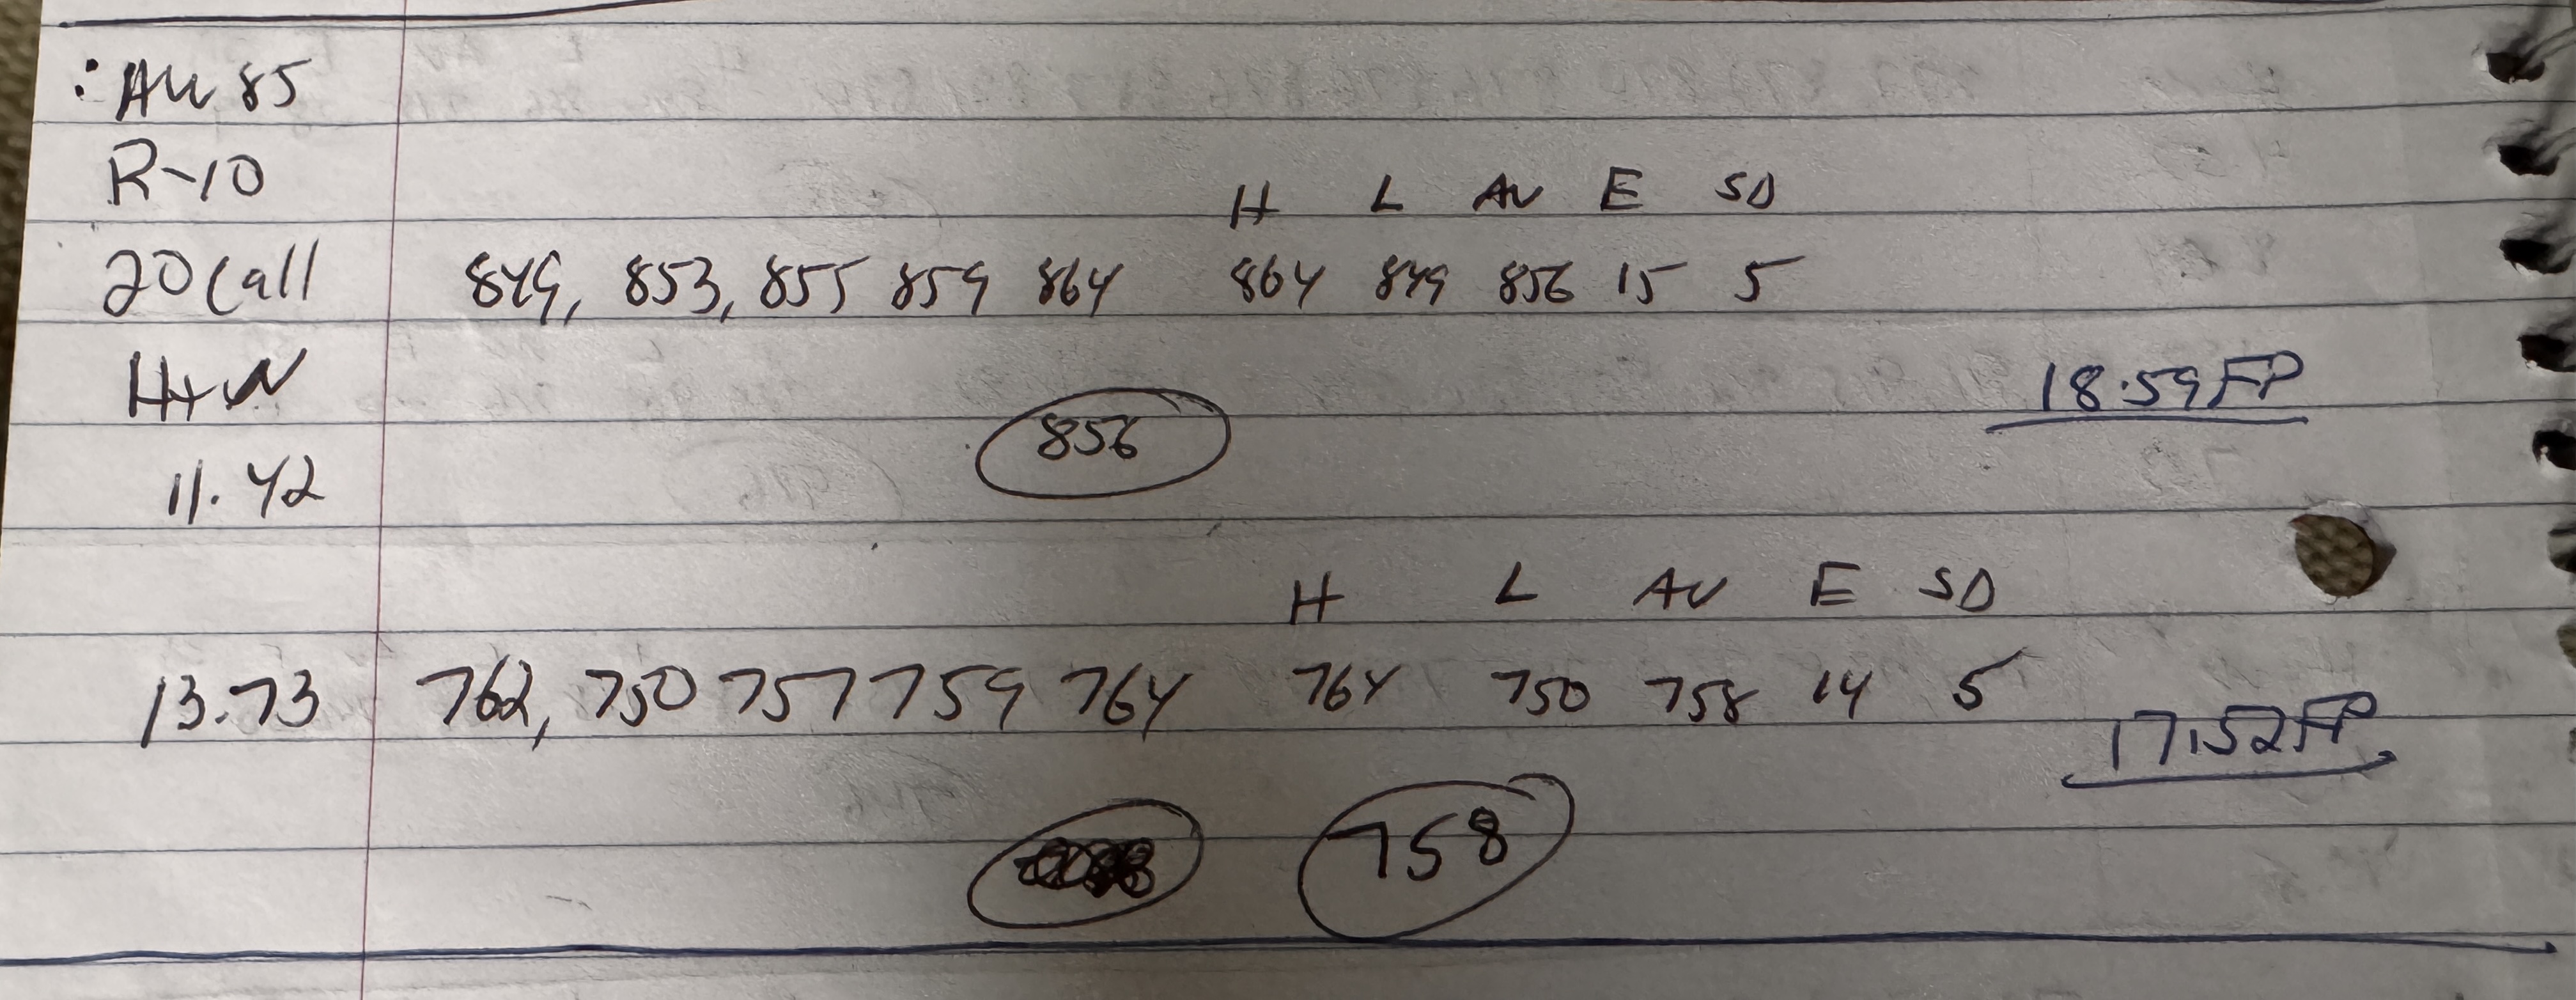 : AW 85
R-10
H L AV E SD
20 Call 849, 853, 855 859 864 864 849 856 15 5
H+N
18.59 FP
856
11.42
H L AV E SD
13.73 762, 750 757 759 764 764 750 758 14 5
17.52 FP
758